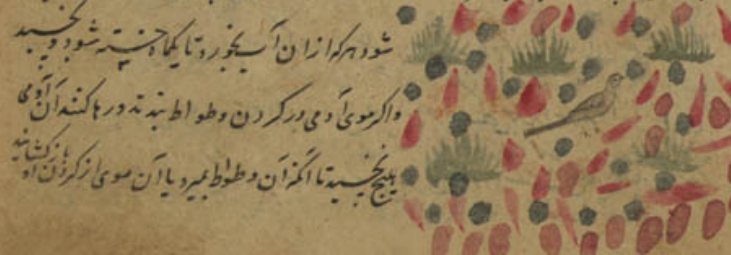 شود هرکه ازان آب بخورد تا یکماه خسته شود و نخسبد
واکر موی آدمی در کردن وطواط بندند و رها کنند آن آدمی
هیچ نخسبد تا آنکه آن وطواط بمیرد یا آن موی از کردن او بازکشایند